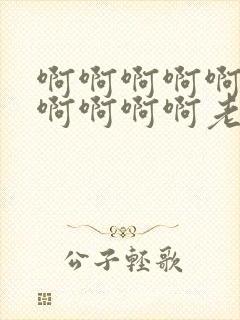 啊啊啊啊啊
啊啊啊啊老
公子轻歌